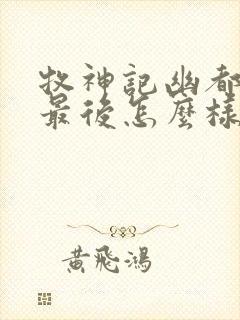 牧神記幽都
最後怎麼樣
黃飛鴻